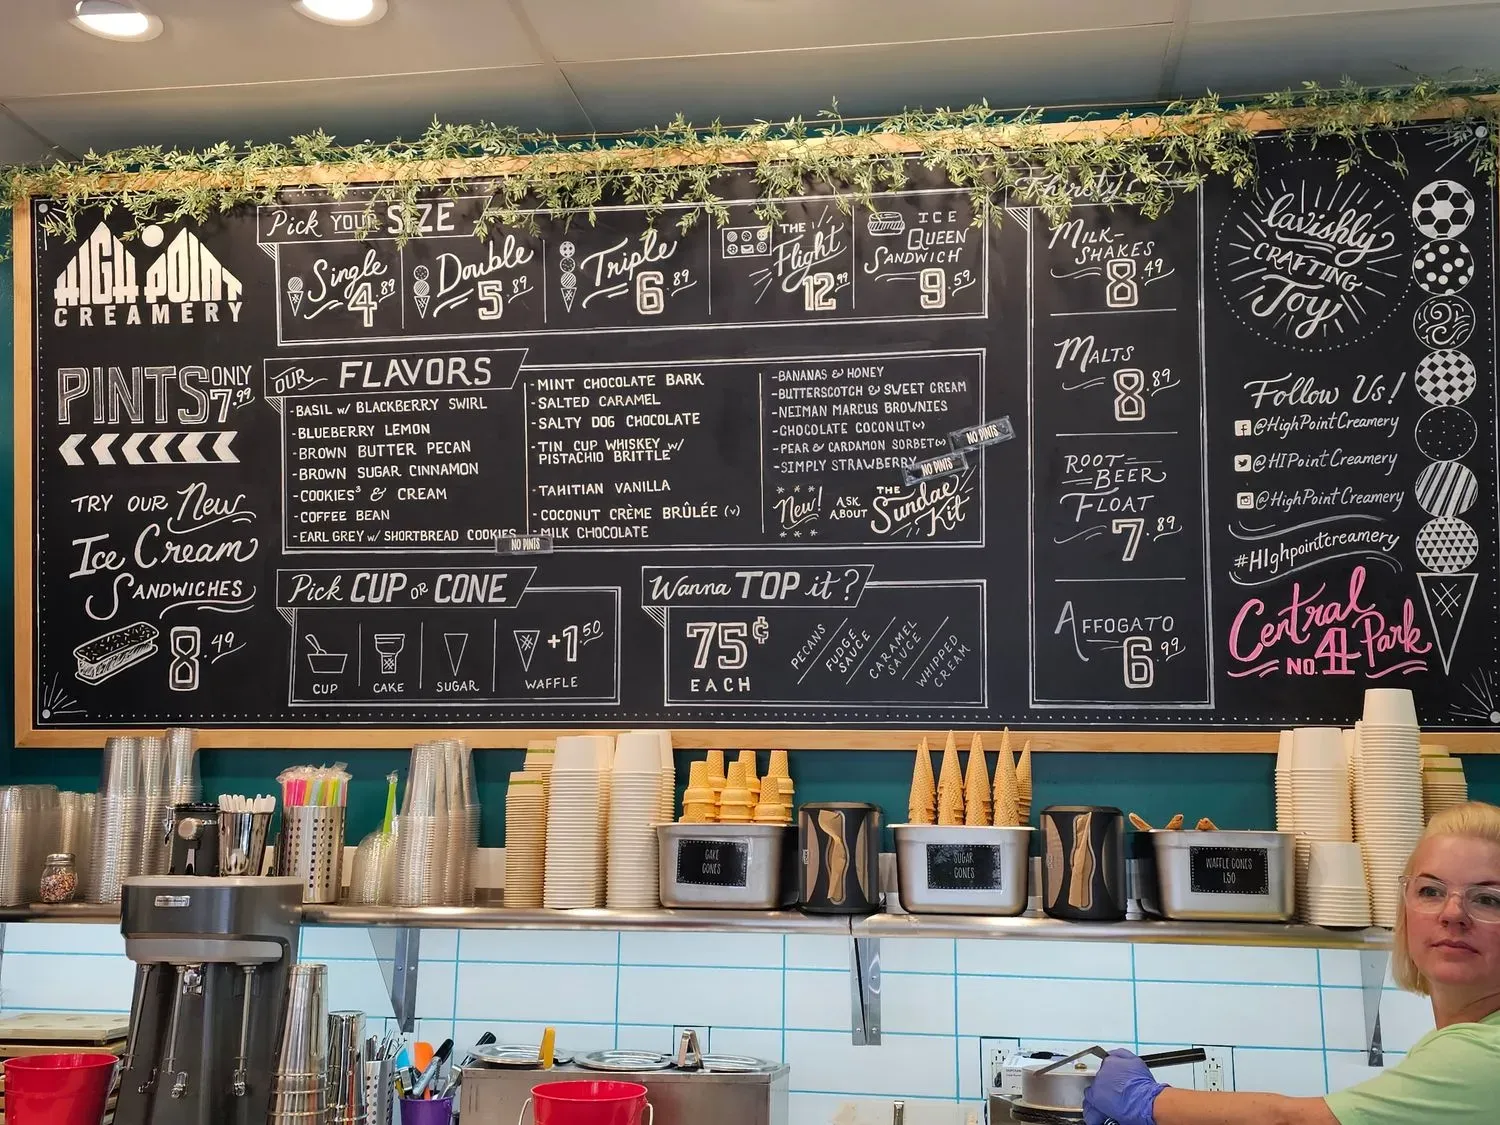 HIGH POINT
CREAMERY
PINTS ONLY
7.99
TRY OUR New
Ice Cream
SANDWICHES
8.49
Pick YOUR SIZE
Single
4.89
Double
5.89
Triple
6.89
THE
Flight
12.99
ICE
QUEEN
SANDWICH
9.59
OUR FLAVORS
-BASIL W/ BLACKBERRY SWIRL
-BLUEBERRY LEMON
-BROWN BUTTER PECAN
-BROWN SUGAR CINNAMON
-COOKIES³ & CREAM
-COFFEE BEAN
-EARL GREY W/ SHORTBREAD COOKIES
NO PINTS
-MINT CHOCOLATE BARK
-SALTED CARAMEL
-SALTY DOG CHOCOLATE
-TIN CUP WHISKEY W/
PISTACHIO BRITTLE
-TAHITIAN VANILLA
-COCONUT CRÈME BRÛLÉE (V)
-MILK CHOCOLATE
-BANANAS & HONEY
-BUTTERSCOTCH & SWEET CREAM
-NEIMAN MARCUS BROWNIES
-CHOCOLATE COCONUT (V)
-PEAR & CARDAMON SORBET (V)
NO PINTS
-SIMPLY STRAWBERRY
NO PINTS
New!
ASK
ABOUT
THE
Sundae
Kit
Pick CUP OR CONE
CUP
CAKE
SUGAR
+1.50
WAFFLE
Wanna TOP it?
75¢
EACH
PECANS
FUDGE
SAUCE
CARAMEL
SAUCE
WHIPPED
CREAM
Thirsty?
MILK-
SHAKES
8.49
MALTS
8.89
ROOT-
BEER
FLOAT
7.89
AFFOGATO
6.99
lavishly
CRAFTING
Joy!
Follow Us!
@HighPointCreamery
@HIPointCreamery
@HighPointCreamery
#HIghpointcreamery
Central Park
NO. 4
CAKE
CONES
SUGAR
CONES
WAFFLE CONES
1.50